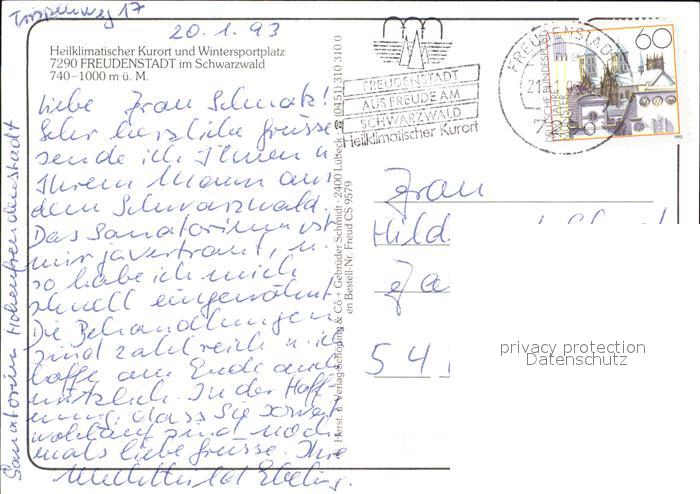 Tripsenweg 17
20.1.93
Heilklimatischer Kurort und Wintersportplatz
7290 FREUDENSTADT im Schwarzwald
740–1000 m ü. M.
Liebe Frau Schmalz!
Sehr herzliche Grüsse
sende ich Ihnen u.
Ihrem Mann aus
dem Schwarzwald.
Das Sanatorium ist
mir ja vertraut, u.
so habe ich mich
schnell eingewöhnt.
Die Behandlungen
sind zahlreich u. ich
hoffe am Ende auch
nützlich. In der Hoff-
nung, dass Sie soweit
wohlauf sind noch-
mals liebe Grüsse. Ihre
Mechthild Ebeling.
Sanatorium Hohenfreudenstadt
Herst. u. Verlag Schöning & Co + Gebrüder Schmidt · 2400 Lübeck ☎ (0451) 310 310 0
Bestell-Nr. Freud CS 9579
FREUDENSTADT
AUS FREUDE AM
SCHWARZWALD
Heilklimatischer Kurort
FREUDENSTADT
21.
7
60
DEUTSCHE BUNDESPOST
Frau
Hild
54
privacy protection
Datenschutz